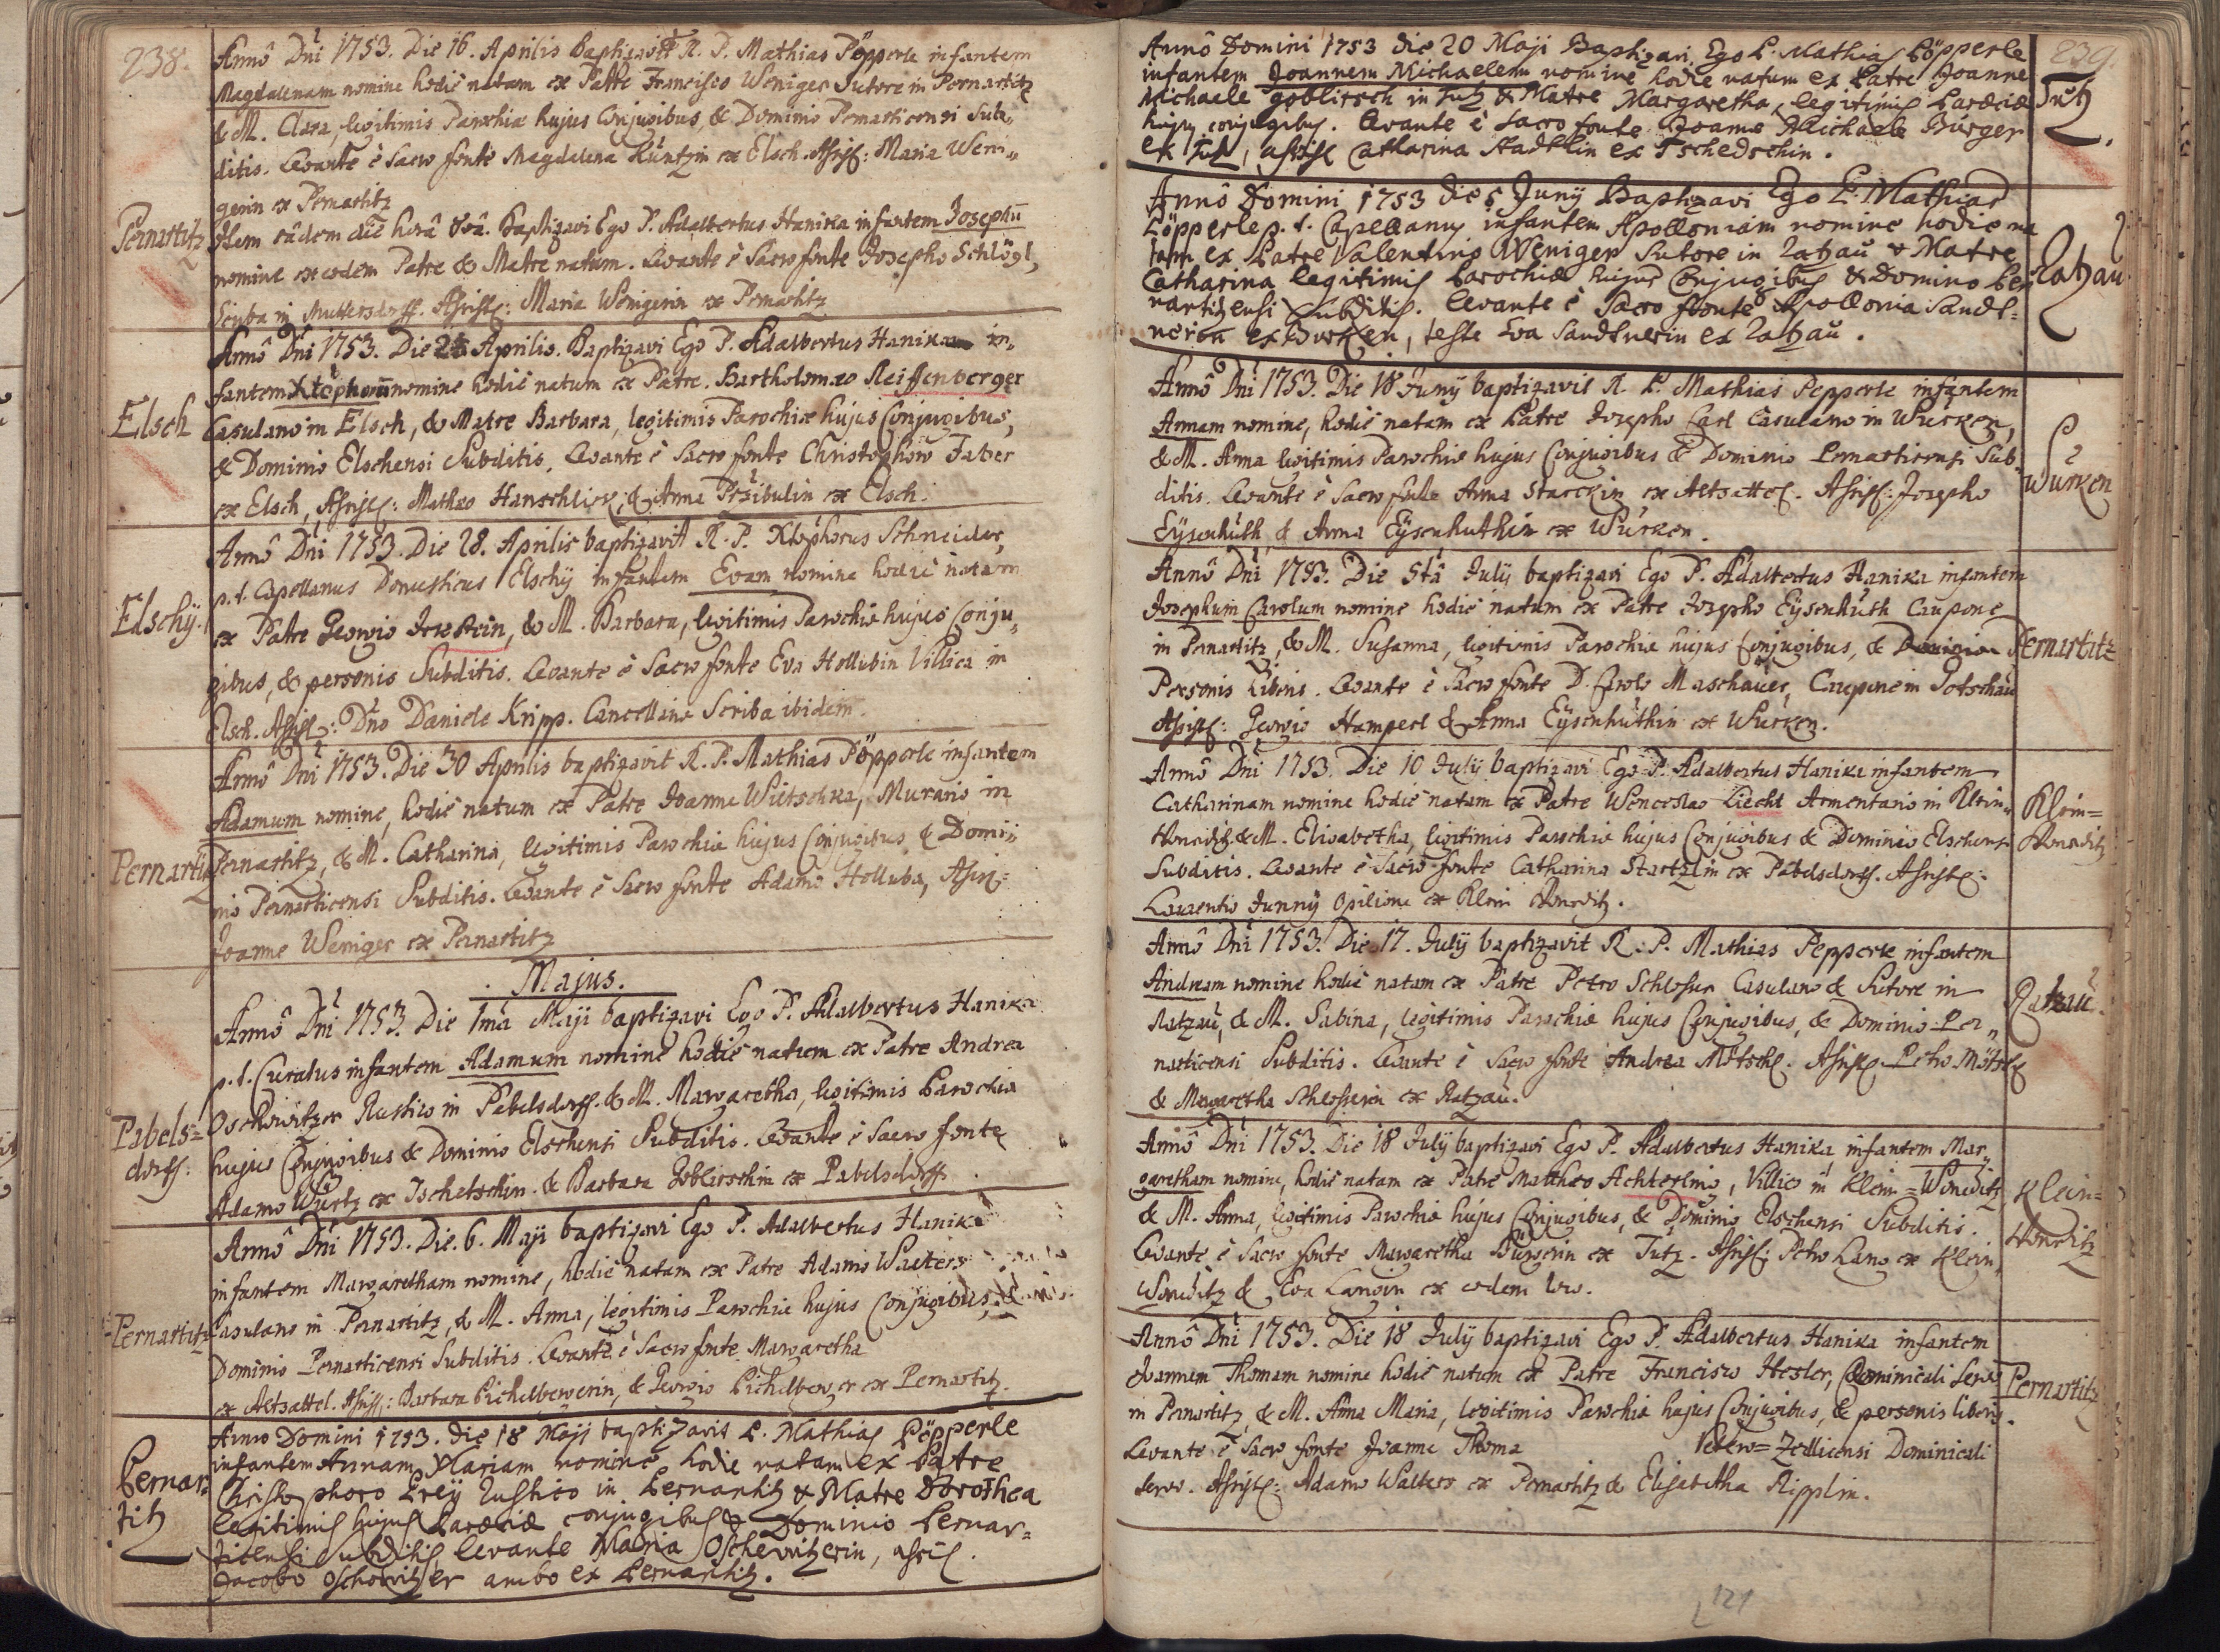 238.
Annô Dni 1753. Die 16. Aprilis Baptizavit R. P. Mathias Pöpperle infantem
Magdalenam nomine hodiè natam ex Patre Francisco Weniger Sutore in Pernartitz
& M. Clara, legitimis Parochiæ hujus Conjugibus, & Dominio Pernarticensi Sub„
ditis. Levante è Sacro fonte Magdalena Küntzin ex Elsch. Assist: Maria Weni„
gerin ex Pernartitz
Pernartitz
Item eâdem die horâ 8vâ. Baptizavi Ego P. Adalbertus Hanika infantem Josephū
nomine ex eodem Patre & Matre natum. Levante è Sacro fonte Josepho Schlögl,
Scriba in Muttersdorff. Assist: Maria Wenigerin ex Pernartitz
Elsch
Annô Dni 1753. Die 25 Aprilis. Baptizavi Ego P. Adalbertus Hanika in„
fantem Xtophorū nomine hodiè natum ex Patre. Bartholomæo Reiffenberger
Casulano in Elsch, & Matre Barbara, legitimis Parochiæ hujus Conjugibus,
& Dominio Elschensi Subditis. Levante è Sacro fonte Christophoro Faber
ex Elsch, Assist: Matheo Hanschlick, & Anna Przibulin ex Elsch.
Elschÿ.
Annô Dni 1753. Die 28. Aprilis baptizavit R. P. Xtophorus Schneider,
p. t. Capellanus Domesticus Elschÿ infantem Evam nomine hodiè natam
ex Patre Georgio, & M. Barbara, legitimis Parochiæ hujus Conju„
gibus, & personis Subditis. Levante è Sacro fonte Eva Hollubin Villica in
Elsch. Assist: Dno Daniele Kripp. Cancellariæ Scriba ibidem.
Pernartitz
Annô Dni 1753. Die 30 Aprilis baptizavit R. P. Mathias Pöpperle infantem
Adamum nomine, hodiè natum ex Patre Joanne Wietschka, Murario in
Pernartitz, & M. Catharina, legitimis Parochiæ hujus Conjugibus & Domi„
nio Pernarticensi Subditis. Levante è Sacro fonte Adamo Holluba, Assist:
Joanne Weniger ex Pernartitz
Majus.
Pabels=
dorff.
Annô Dni 1753. Die 1mâ Maji baptizavi Ego P. Adalbertus Hanika
p. t. Curatus infantem Adamum nomine hodiè natum ex Patre Andrea
Oschowitzer Rustico in Pabelsdorff. & M. Margaretha, legitimis Parochiæ
hujus Conjugibus & Dominio Elschensi Subditis. Levante è Sacro fonte
Adamo Würtz ex Tschetschin. & Barbara Goblirschin ex Pabelsdorff.
Pernartitz
Annô Dni 1753. Die. 6. Maji baptizavi Ego P. Adalbertus Hanika
infantem Margaretham nomine, hodiè natam ex Patre Adamo Walters
Casulano in Pernartitz, & M. Anna, legitimis Parochiæ hujus Conjugibus, &
Dominio Pernarticensi Subditis. Levante è Sacro fonte Margaretha
ex Altsattel. Assist: Barbara Pichelbergerin, & Georgio Pichelberger ex Pernartitz.
Pernar=
titz
Anno Domini 1753. die 18 Maji baptizavit P. Mathias Pöpperle
infantem Annam Mariam nomine hodie natam ex Patre
Christophoro Preÿ Rustico in Pernartitz & Matre Dorothea
legitimis hujus Parœciæ conjugibus & Dominio Pernar=
titensi subditis levante Maria Oschewitzerin, assis.
Jacobo Oschowitzer ambo ex Pernartitz.
239.
Annô Domini 1753 die 20 Maji Baptizavi Ego P. Mathias Pöpperle
infantem Joannem Michaelem nomine hodie natum ex Patre Joanne
Michaele goblirsch in Tutz & Matre Margaretha, legitimis Parœciæ
hujus conjugibus. Levante è Sacro fonte Joanne Michaele Bürger
ex Tutz, assist Catharina Stadtlin ex Tschedschin.
Tutz.
Annô Domini 1753 die 5 Junÿ Baptizavi Ego P. Mathias
Pöpperle p. t. Capellanus infantem Apolloniam nomine hodie na
tam ex Patre Valentino Weniger Sutore in Ratzau & Matre
Catharina legitimis Parochiæ hujus Conjugibus & Dominio Per
nartitzensi Subditis. Levante è Sacro fonte Apollonia Sandt=
nerin ex Wurken, teste Eva Sandtnerin ex Ratzau.
Ratzau
Annô Dni 1753. Die 18 Junÿ baptizavit R. P. Mathias Pepperle infantem
Annam nomine, hodiè natam ex Patre Josepho Carl Casulano in Wurken,
& M. Anna legitimis Parochiæ hujus Conjugibus & Dominio Pernarticensi Sub„
ditis. Levante è Sacro fonte Anna Starckin ex Altsattel. Assist: Josepho
Eÿsenhüth & Anna Eÿsenhuthin ex Würken.
Würken
Annô Dni 1753. Die 5tâ Julÿ baptizavi Ego P. Adalbertus Hanika infantem
Josephum Carolum nomine hodiè natum ex Patre Josepho Eÿsenhüth Caupone
in Pernartitz, & M. Susanna, legitimis Parochiæ hujus Conjugibus, & Dominio
Personis Liberis. Levante è Sacro fonte D. Carolo Maschauer, Caupone in Gotschau
Assist: Georgio Hamperl & Anna Eÿsenhüthin ex Würken.
Pernartitz
Annô Dni 1753. Die 10 Julÿ baptizavi Ego P. Adalbertus Hanika infantem
Catharinam nomine hodiè natam ex Patre Wenceslao Liecht Armentario in Klein„
Wonditz & M. Elisabetha, legitimis Parochiæ hujus Conjugibus & Dominio Elschensi
Subditis. Levante è Sacro fonte Catharina Startzlin ex Pabelsdorff. Assist:
Laurentio Junnÿ Opilione ex Klein Wonditz.
Klein=
Wonditz
Annô Dni 1753. Die 17. Julÿ baptizavit R. P. Mathias Pepperle infantem
Andream nomine hodiè natam ex Patre Petro Schlosser Casulano & Sutore in
Ratzau, & M. Sabina, legitimis Parochiæ hujus Conjugibus, & Dominio Per„
narticensi Subditis. Levante è Sacro fonte Andrea Mötschl. Assist: Petro Mötschl
& Margaretha Schlosserin ex Ratzau.
Ratzau.
Annô Dni 1753. Die 18 Julÿ baptizavi Ego P. Adalbertus Hanika infantem Mar„
garetham nomine, hodiè natam ex Patre Mattheo Achterlino, Villico in Klein=Wonditz
& M. Anna, legitimis Parochiæ hujus Conjugibus, & Dominio Elschensi Subditis.
Levante è Sacro fonte Margaretha Bürgerin ex Tutz. Assist: Petro Lang ex Klein„
Wonditz & Eva Langin ex eodem loco.
Klein=
Wonditz
Annô Dni 1753. Die 18 Julÿ baptizavi Ego P. Adalbertus Hanika infantem
Joannem Thomam nomine hodiè natum ex Patre Francisco Hesler, Dominicali Servo
in Pernartitz & M. Anna Maria, legitimis Parochiæ hujus Conjugibus, & personis liberis.
Levante è Sacro fonte Joanne Thoma Vetero=Zedlicensi Dominicali
servo. Assist: Adamo Walters ex Pernartitz & Elisabetha Ripplin.
Pernartitz
121